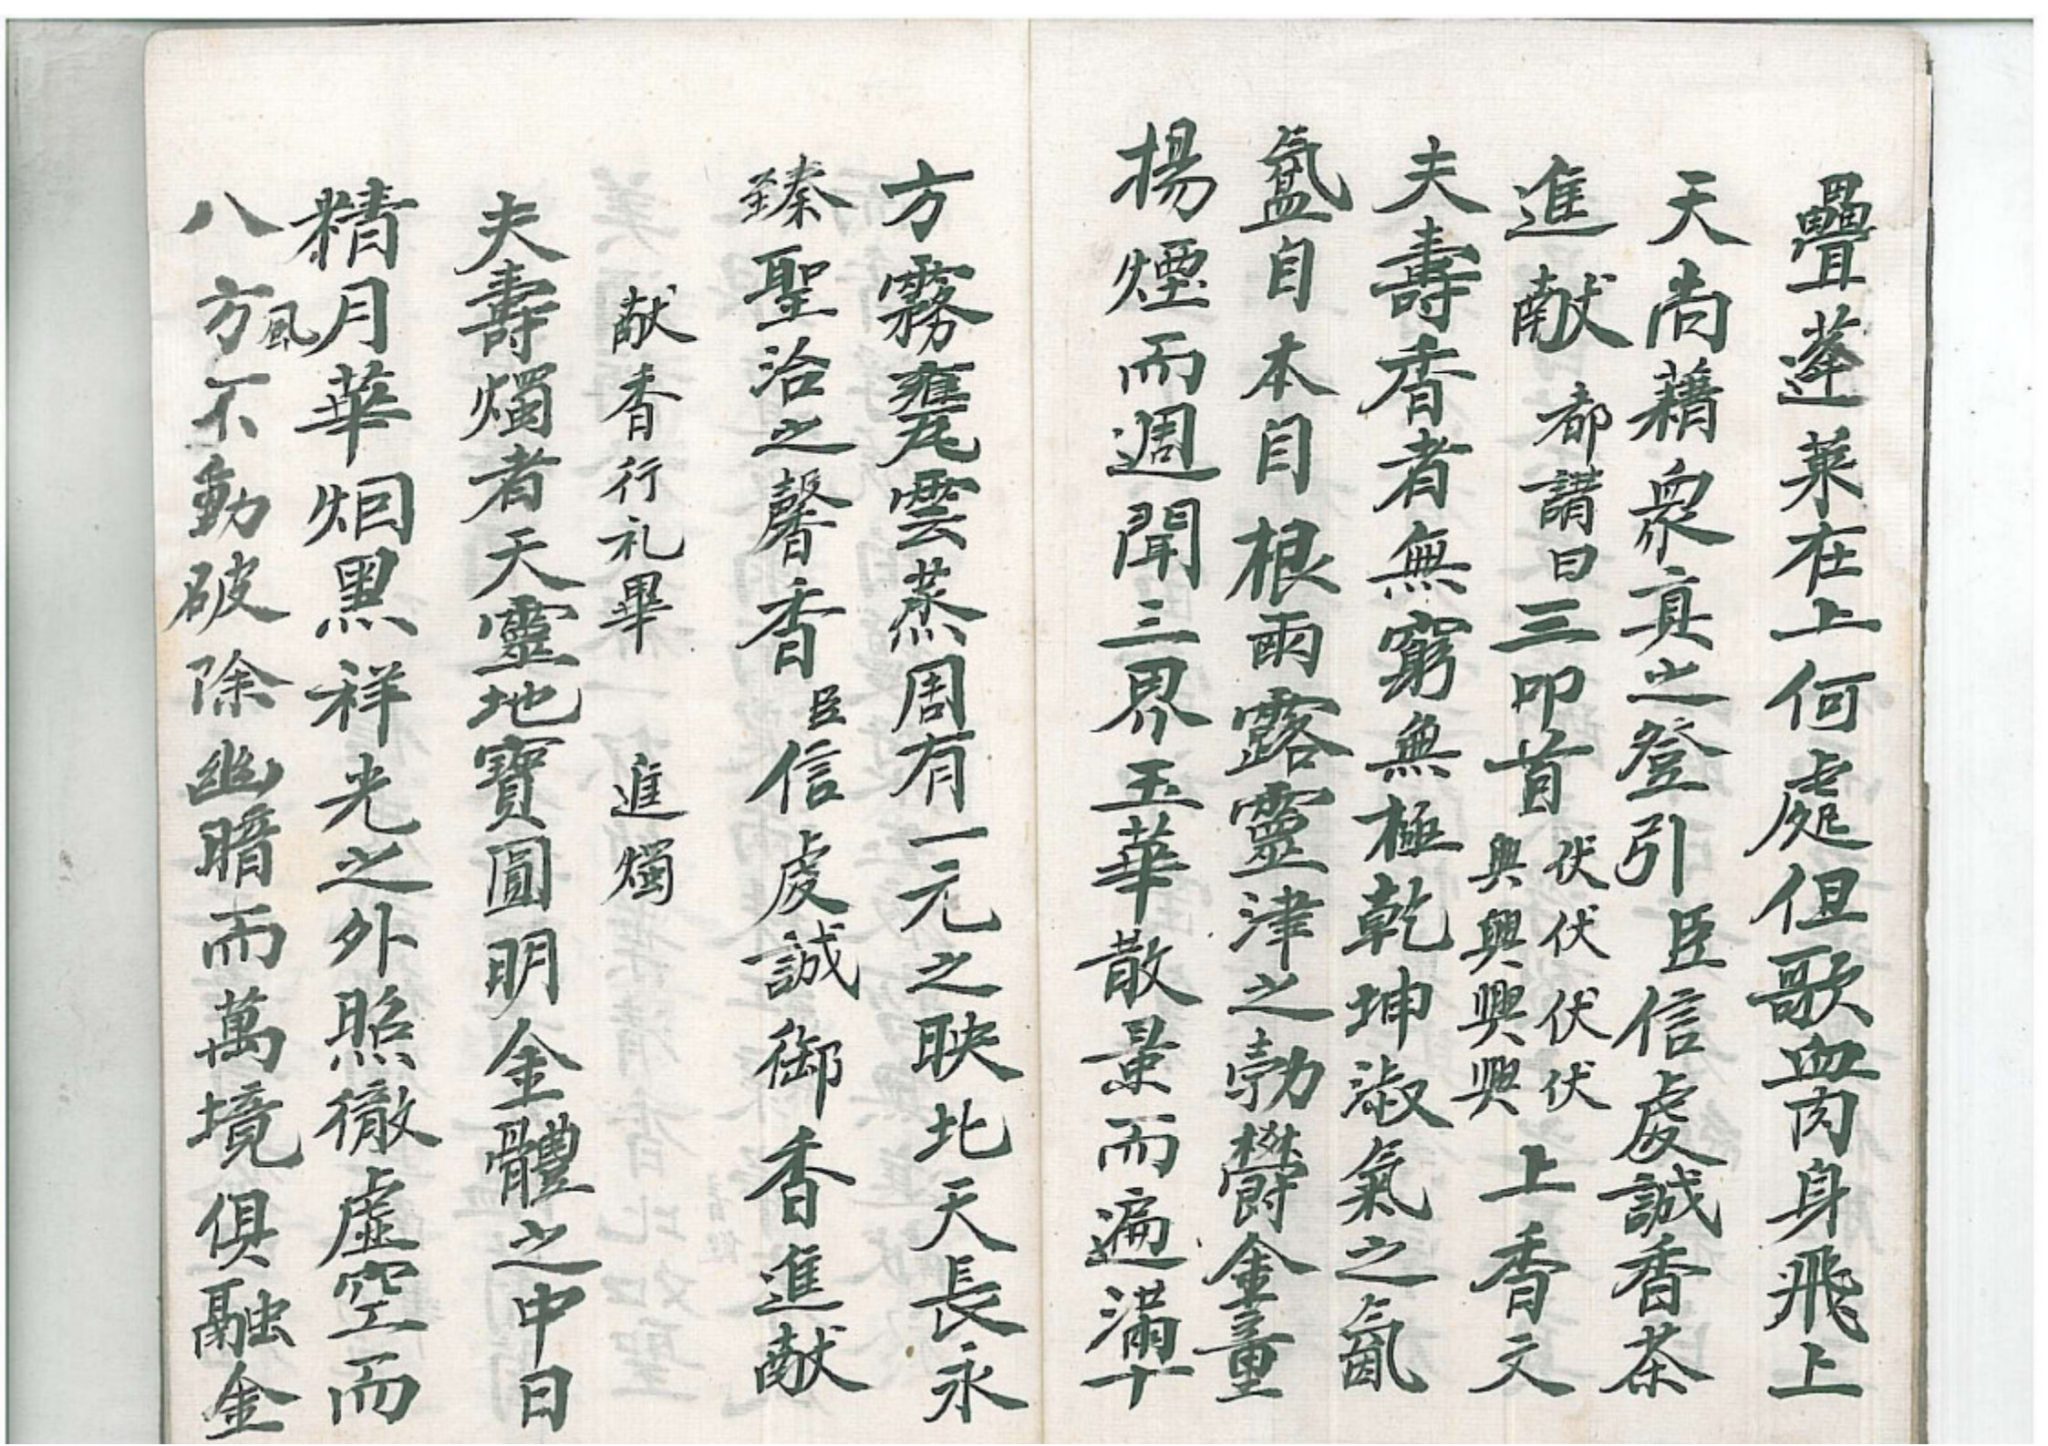 疊蓬萊在上何處但歌血肉身飛上
天尚藉衆真之登引臣信虔誠香茶
進献都講曰三叩首伏興伏興伏興伏興上香文
夫壽香者無窮無極乾坤淑氣之氤
氳自本自根雨露靈津之勃欝金童
揚煙而週聞三界玉華散景而遍滿十
方霧甕雲蒸周有一元之映北天長永
臻聖治之馨香臣信虔誠御香進献
献香行礼畢　進燭
夫壽燭者天靈地寶圓明金體之中日
精月華烟黑祥光之外照徹虛空而
八方風不動破除幽暗而萬境俱融金